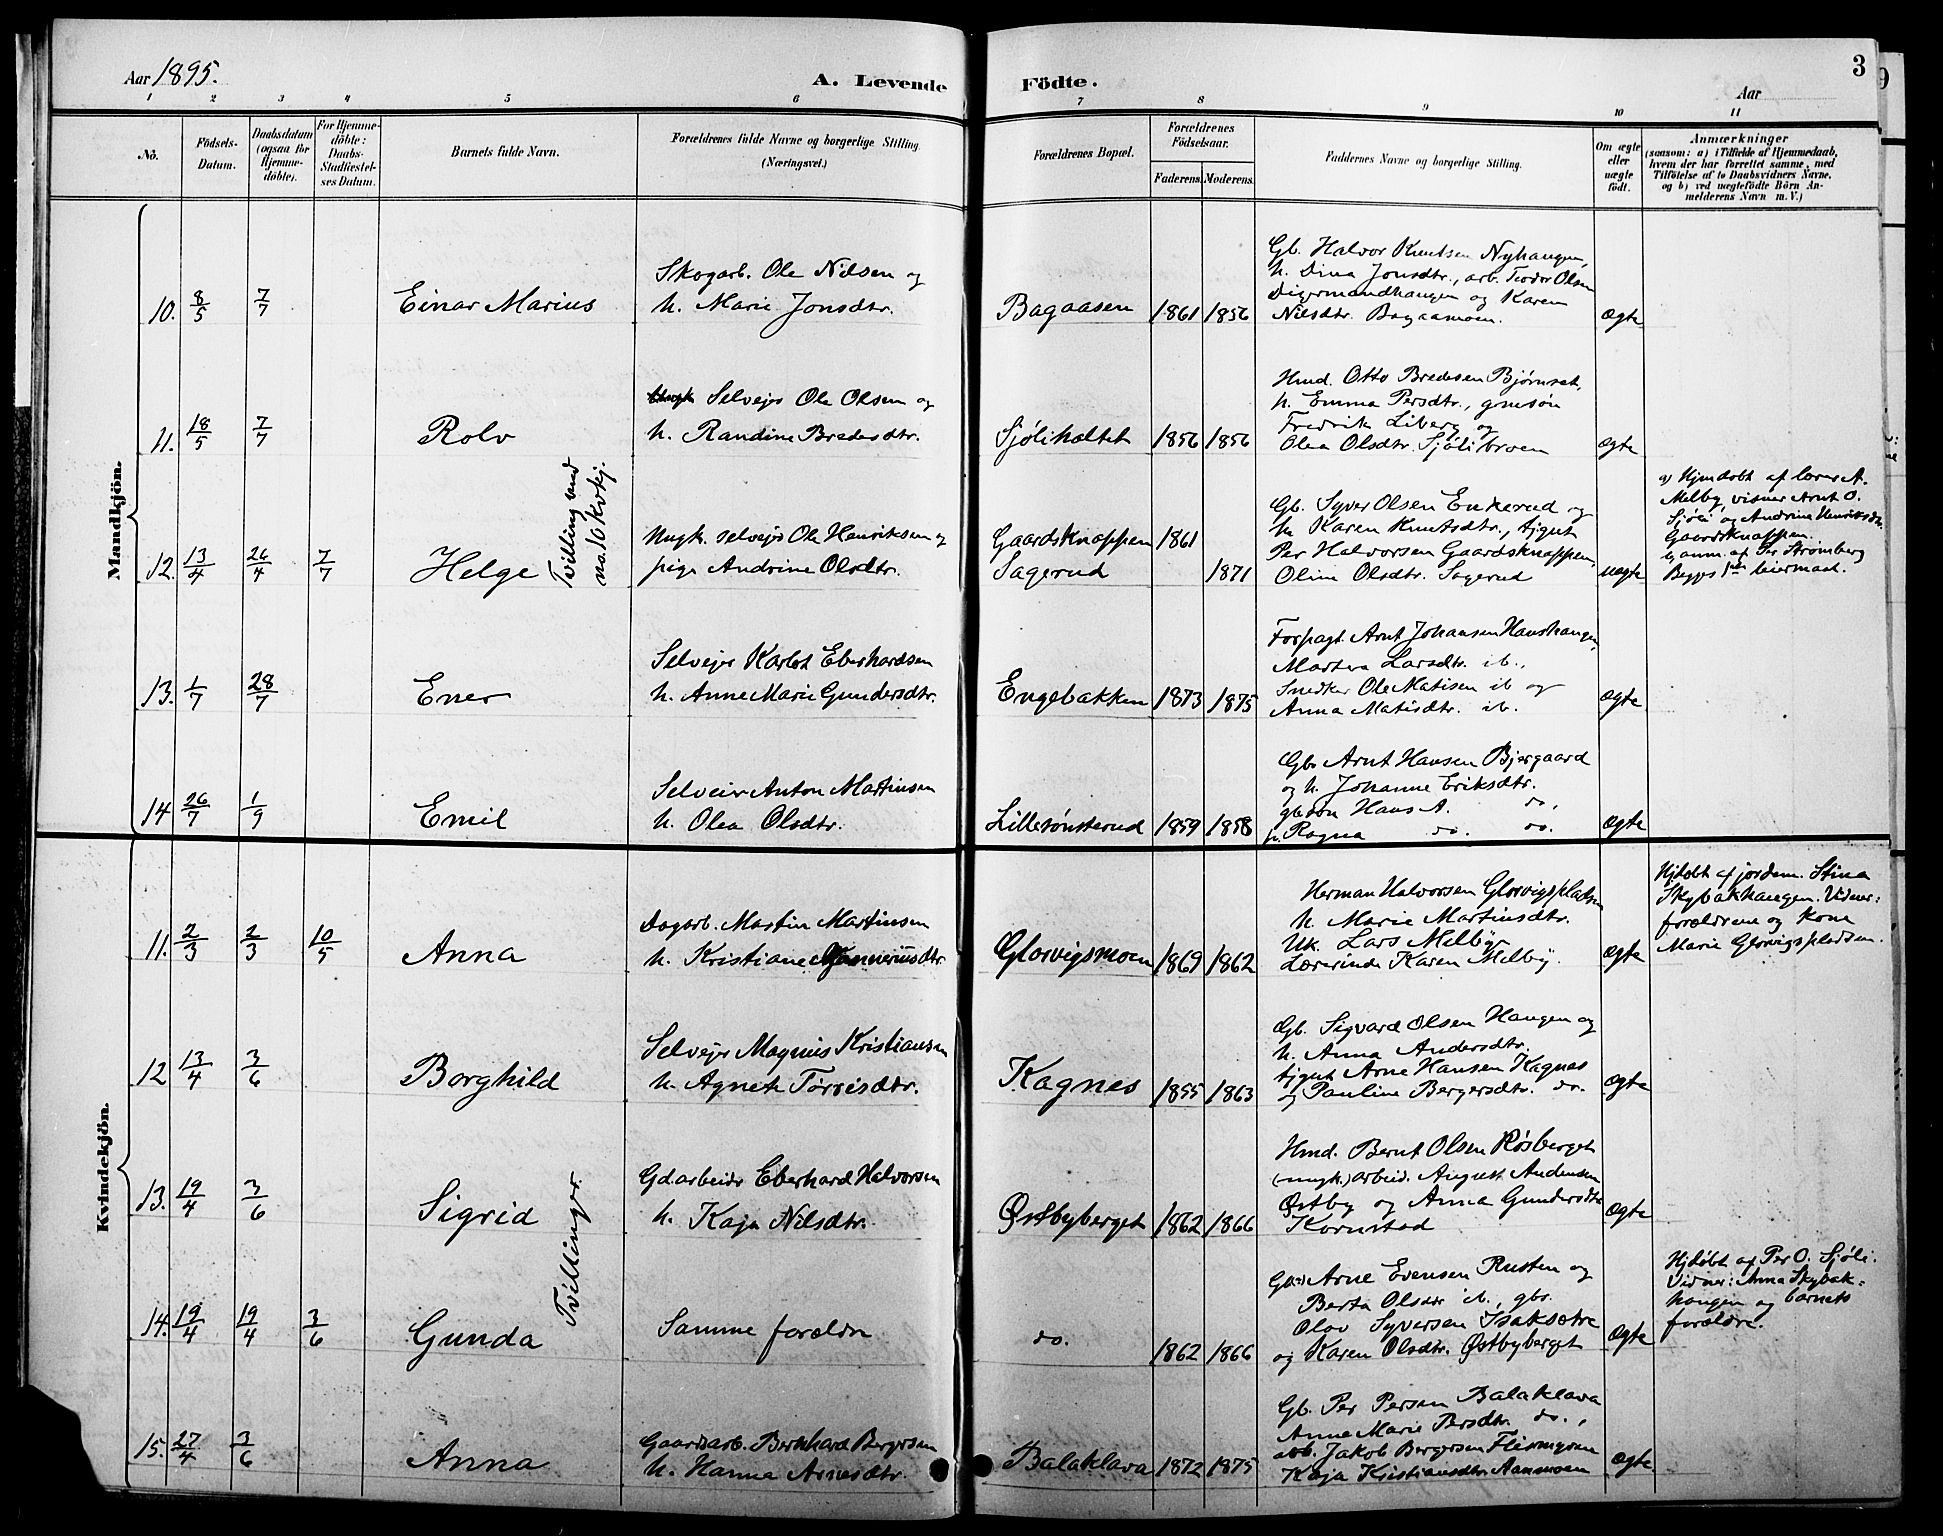 Aar 1895.
A. Levende Födte.
3
Aar
1 2 3 4 5 6 7 8 9 10 11
No.
Födsels-
Datum.
Daabsdatum
(ogsaa for
Hjemme-
döbte).
For Hjemme-
döbte:
Daabs-
Stadfæstel-
ses Datum.
Barnets fulde Navn.
Forældrenes fulde Navne og borgerlige Stilling.
(Næringsvei.)
Forældrenes Bopæl.
Forældrenes
Födselsaar.
Faderens. Moderens.
Faddernes Navne og borgerlige Stilling.
Om ægte
eller
uægte
födt.
Anmærkninger
(saasom: a) i Tilfælde af Hjemmedaab,
hvem der har forrettet samme, med
Tilföielse af to Daabsvidners Navne,
og b) ved uægtefödte Börn An-
melderens Navn m. V.)
Mandkjön.
10. 8/5 7/7
Einar Marius
Skogarb. Ole Nilsen og
h. Marie Jonsdtr.
Bagaasen 1861 1856
Gb. Halvor Knutsen Nyhaugen,
h. Dina Jonsdtr., arb. Teodor Olsen
Digermandhaugen og Karen
Nilsdtr. Bagaasmoen.
ægte
11. 18/5 7/7
Rolv
Selvejer Ole Olsen og
h. Randine Bredesdtr.
Sjøliholtet 1856 1856
Hmd. Otto Bredesen Bjørnset,
h. Emma Persdtr., gmesøn
Fredrik Liberg og
Olea Olsdtr. Sjølibroen
ægte
12. 13/4 26/4 7/7
Helge
Tvilling med
no. 10 kvkj.
Ungk. selvejer Ole Henriksen og
pige Andrine Olsdtr.
Gaardsknappen 1861
Sagerud 1871
Gb. Syver Olsen Enkerud og
h. Karen Knutsdtr., tjgut
Per Halvorsen Gaardsknappen,
Oline Olsdtr. Sagerud
uægte
a) Hjmdøbt af lærer A.
Melby, vidner Arnt O.
Sjøli og Andrine Henriksdtr.
Gaardsknappen.
b) anm. af Per Strømberg
Begges 1ste leiermaal.
13. 1/7 28/7
Ener
Selvejer Karlot Eberhardsen
h. Anne Marie Gundersdtr.
Engebakken 1873 1875
Forpagt. Arnt Johansen Haushaugen,
Martea Larsdtr. ib.,
Snedker Ole Matisen ib og
Anna Matisdtr. ib.
ægte
14 26/7 1/9
Emil
Selveier Anton Martinsen
h. Olea Olsdtr.
Lillesønsterud 1859 1858
Gb. Arnt Hansen Bjergaard
og h. Johanne Eriksdtr.
gbsøn Hans A. do.
p. Ragna do. do.
ægte
Kvindekjön.
11. 2/3 2/3 10/5
Anna
Dagarb. Martin Martinsen
h. Kristiane
Glorvigsmoen 1869 1862
Herman Halvorsen Glorvigspladsen
h. Marie Martinsdtr.
Uk. Lars Melby
Lærerinde Karen Melby.
ægte
Hjdøbt af jordem. Stina
Skybakhaugen. Vidner:
forældrene og kone
Marie Glorvigspladsen.
12 13/4 3/6
Borghild
Selvejer Magnus Kristiansen
h. Agnete Torrisdtr.
Kagnes 1855 1863
Gb. Sigvard Olsen Haugen og
h. Anna Andersdtr.
tjgut Arne Hansen Kagnes
og Pauline Bergersdtr. do.
ægte
13. 19/4 3/6
Sigrid
Tvillinger.
Gdarbeider Eberhard Halvorsen
h. Kaja Nilsdtr.
Østbyberget 1862 1866
Hmd. Bernt Olsen Røsberget
(ungk.) arbeid. August Andersen
Østby og Anna Gundersdtr
Kornstad
ægte
14. 19/4 19/4 3/6
Gunda
Samme forældre
do. 1862 1866
Arne Evensen Rusten og
Berta Olsdtr ib., gbs.
Olov Syversen Isaksætre
og Karen Olsdtr. Østbyberget
ægte
Hjdøbt af Per O. Sjøli.
Vidner: Anna Skybak-
haugen og barnets
forældre.
15. 27/4 3/6
Anna
Gaardsarb. Bernhard Bergersen
h. Hanna Arnesdtr.
Balaklava 1872 1875
Gb. Per Persen Balaklava
Anne Marie Persdtr. do.,
arb. Jakob Bergersen
Kaja Kristiansdtr. Aanmoen
ægte